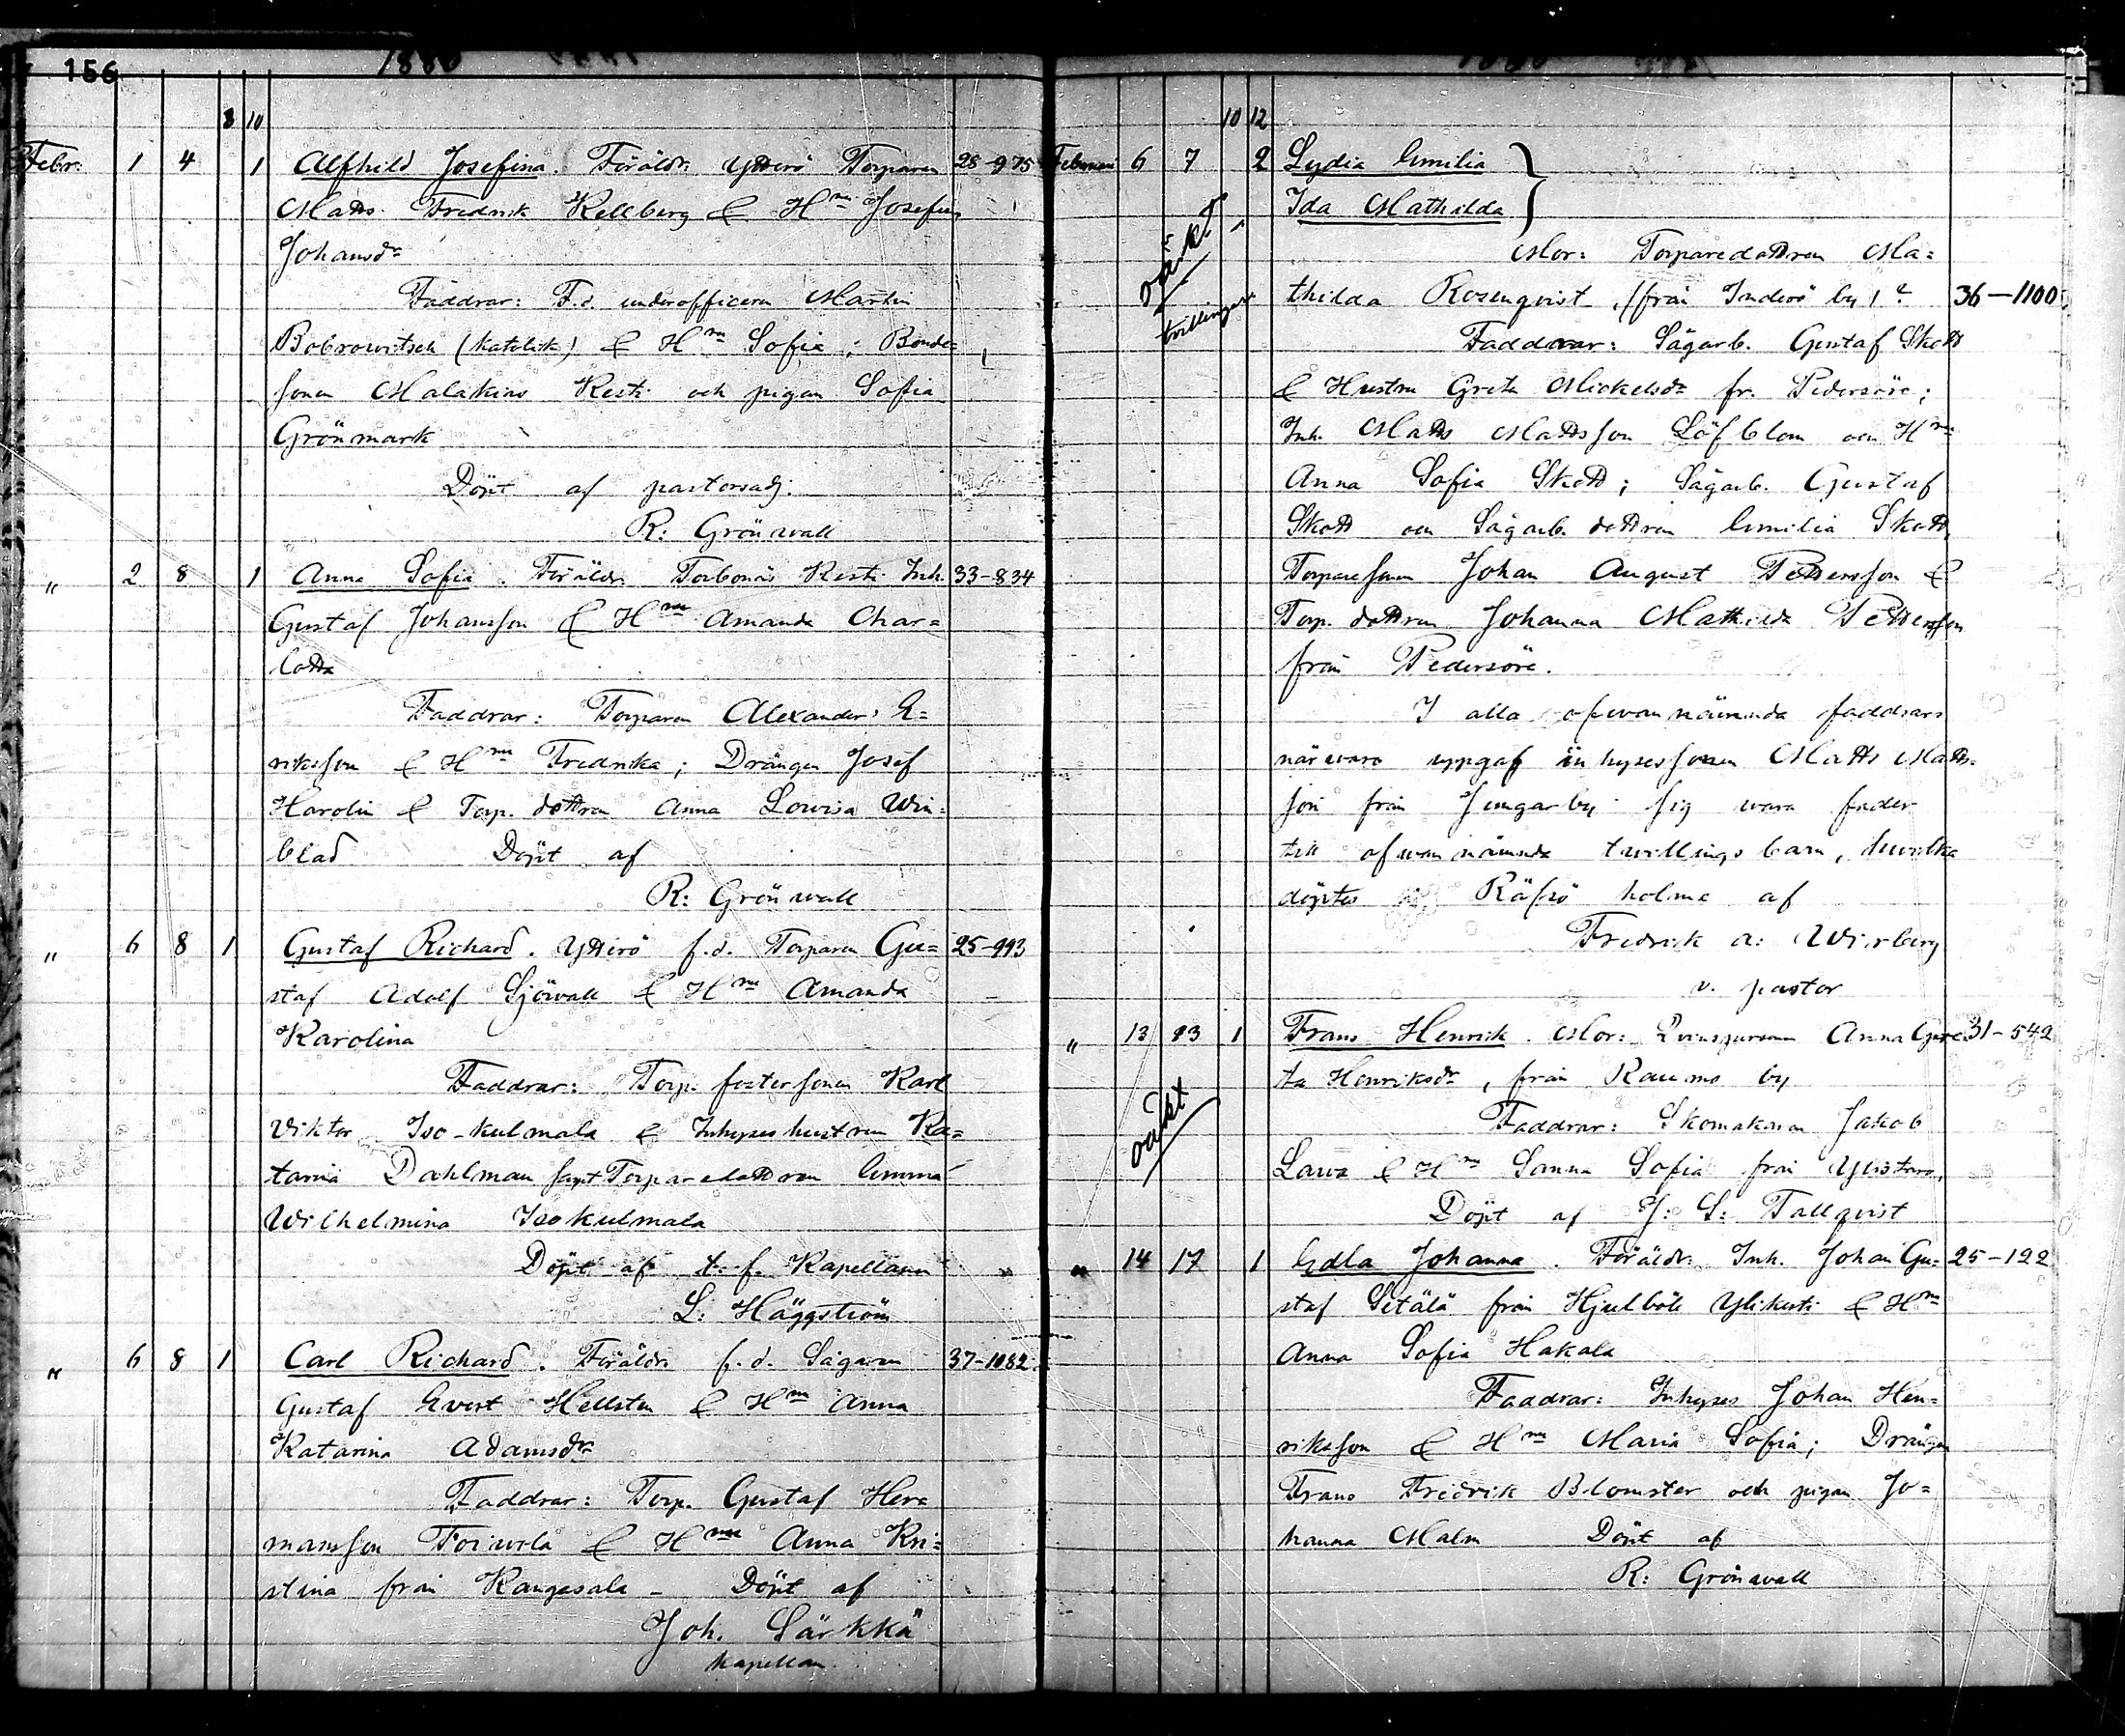 156
1880
8 10
Febr. 1 4 1 Alfhild Josefina. Föräldr. Ytterö Torparen 28-975
Matts Fredrik Kellberg & Hru Josefina
Johansdr
Faddrar: F.d. underofficeren Martin
Bobrowitsch (katolik) & Hru Sofia; Bonde-
sonen Malakias Kesti och pigan Sofia
Grönmark
Döpt af pastorsadj.
R: Grönwall
" 2 8 1 Anna Sofia. Föräldr. Torbonäs Kesti Inh. 33-834
Gustaf Johansson & Hru Amanda Char=
lotta
Faddrar: Torparen Alexander E=
riksson & Hru Fredrika; Drängen Josef
Harolin & Torp. dottren Anna Lowisa Win=
blad Döpt af
R: Grönwall
" 6 8 1 Gustaf Richard. Ytterö f.d. Torparen Gu= 25-993
staf Adolf Sjöwall & Hru Amanda
Karolina
Faddrar: Torp. fostersonen Karl
Viktor Iso-kulmala & Inhyses hustrun Ka=
tarina Dahlman samt Torparedottren Emma
Wilhelmina Isokulmala
Döpt af t. f. Kapellanen
L: Häggström
" 6 8 1 Carl Richard. Föräldr. f.d. Sågaren 37-1082
Gustaf Evert Hellsten & Hru Anna
Katarina Adamsdr
Faddrar: Torp. Gustaf Her=
mansson Toiwola & Hru Anna Kri=
stina från Kangasala - Döpt af
Joh. Särkkä
Kapellan.
10 12
Februari 6 7 2 Lydia Emilia
Ida Mathilda
oäkt
tvillingar
Mor: Torparedottren Ma=
thilda Rosenqvist, (från Inderö by) 36-1100
Faddrar: Sågarb. Gustaf Skott
& Hustru Greta Mickelsdr fr. Pedersöre;
Inh. Matts Mattsson Löfblom och Hru
Anna Sofia Skott; Sågarb. Gustaf
Skott och Sågarb. dottren Emilia Skott,
Torparesonen Johan August Pettersson &
Torp. dottren Johanna Mathilda Pettersson
från Pedersöre.
I alla ofwannämnda faddrars
närwaro uppgaf inhysessonen Matts Matts=
son från Jungarby sig wara fader
till ofwannämnda twillingsbarn, hwilka
döptes å Räfsö holme af
Fredrik A: Wirberg
v. pastor
" 13 23 1 Frans Henrik. Mor: Qvinsperson Anna Gre= 31-542
ta Henriksdr, från Raumo by
oäkt
Faddrar: Skomakaren Jakob
Lawa & Hru Sanna Sofia från Ylistaro.
Döpt af J: L: Tallqvist
" 14 17 1 Edla Johanna. Föräldr. Inh. Johan Gu= 25-122
staf Setälä från Hjulböle Ylikesti & Hru
Anna Sofia Hakala
Faddrar: Inhyses Johan Hen=
riksson & Hru Maria Sofia; Drängen
Frans Fredrik Blomster och pigan Jo=
hanna Malm Döpt af
R: Grönwall